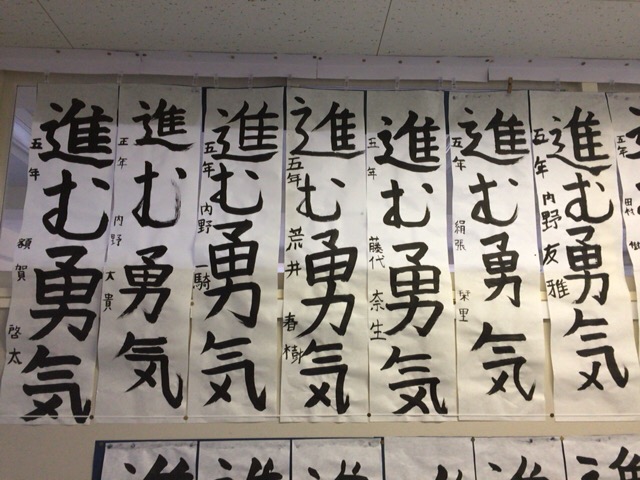 進む勇気
五年 内野 友雅
進む勇気
五年 絹張 栞里
進む勇気
五年 藤代 奈生
進む勇気
五年 荒井 春樹
進む勇気
五年 内野 一騎
進む勇気
五年 内野 大貴
進む勇気
五年 額賀 啓太